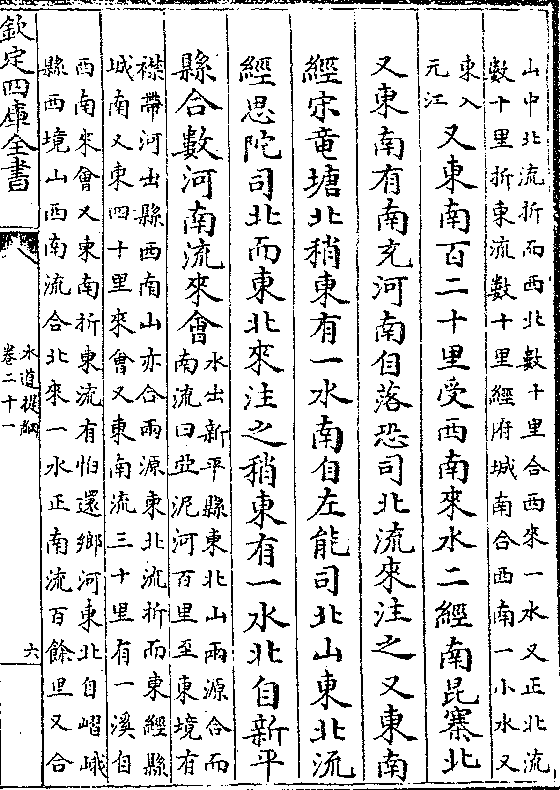 山中北流折而西北數十里合西來一水又正北流
數十里折東流數十里經府城南合西南一小水又
東入
元江
又東南百二十里受西南來水二經南昆寨北
又東南有南充河南自落恐司北流來注之又東南
經宋竜塘北稍東有一水南自左能司北山東北流
經思陀司北而東北來注之稍東有一水北自新平
縣合數河南流來會
水出新平縣東北山兩源合而
南流曰亞泥河百里至東境有
襟帶河出縣西南山亦合兩源東北流折而東經縣
城南又東四十里來會又東南流三十里有一溪自
西南來會又東南折東流有怕還鄉河東北自嶍峨
縣西境山西南流合北來一水正南流百餘里又合
欽定四庫全書
水道提綱
卷二十一
六